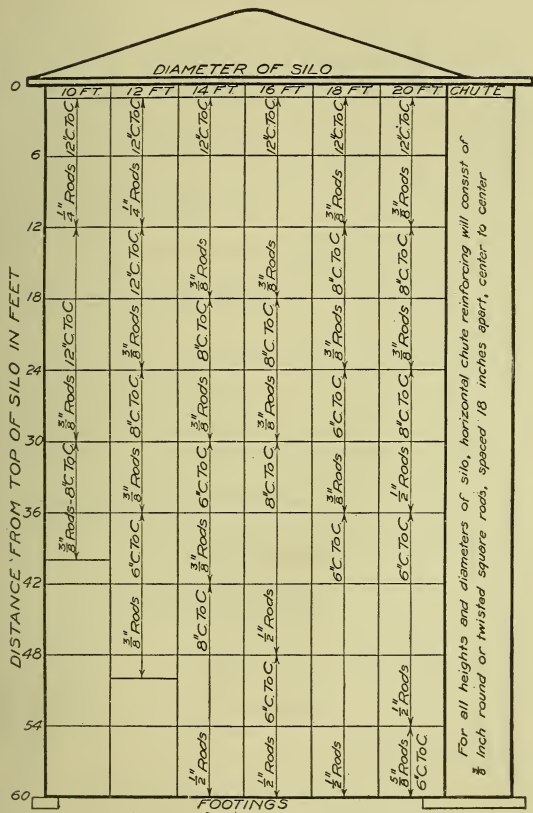 DIAMETER OF SILO
10 FT. 12 FT 14 FT. 16 FT. 18 FT. 20 FT. CHUTE
DISTANCE FROM TOP OF SILO IN FEET
0
6
12
18
24
30
36
42
48
54
60
1/4" Rods 12"C.ToC
3/8" Rods 12"C.ToC
3/8" Rods-8"C.ToC.
1/4" Rods 12"C.ToC
3/8" Rods 12"C.ToC.
3/8" Rods 8"C.ToC
3/8" Rods 6"C.ToC
3/8" Rods 12"C.ToC
3/8" Rods 8"C.ToC
3/8" Rods 6"C.ToC
1/2" Rods 8"C.ToC
3/8" Rods 12"C.ToC
3/8" Rods 8"C.ToC
1/2" Rods 8"C.ToC
1/2" Rods 6"C.ToC
3/8" Rods 12"C.ToC
3/8" Rods 8"C.ToC
3/8" Rods 6"C.ToC
1/2" Rods 6"C.ToC
3/8" Rods 12"C.ToC
3/8" Rods 8"C.ToC
1/2" Rods 8"C.ToC
1/2" Rods 6"C.ToC
5/8" Rods 6"C.ToC
For all heights and diameters of silo, horizontal chute reinforcing will consist of
3/8 inch round or twisted square rods, spaced 18 inches apart, center to center
FOOTINGS